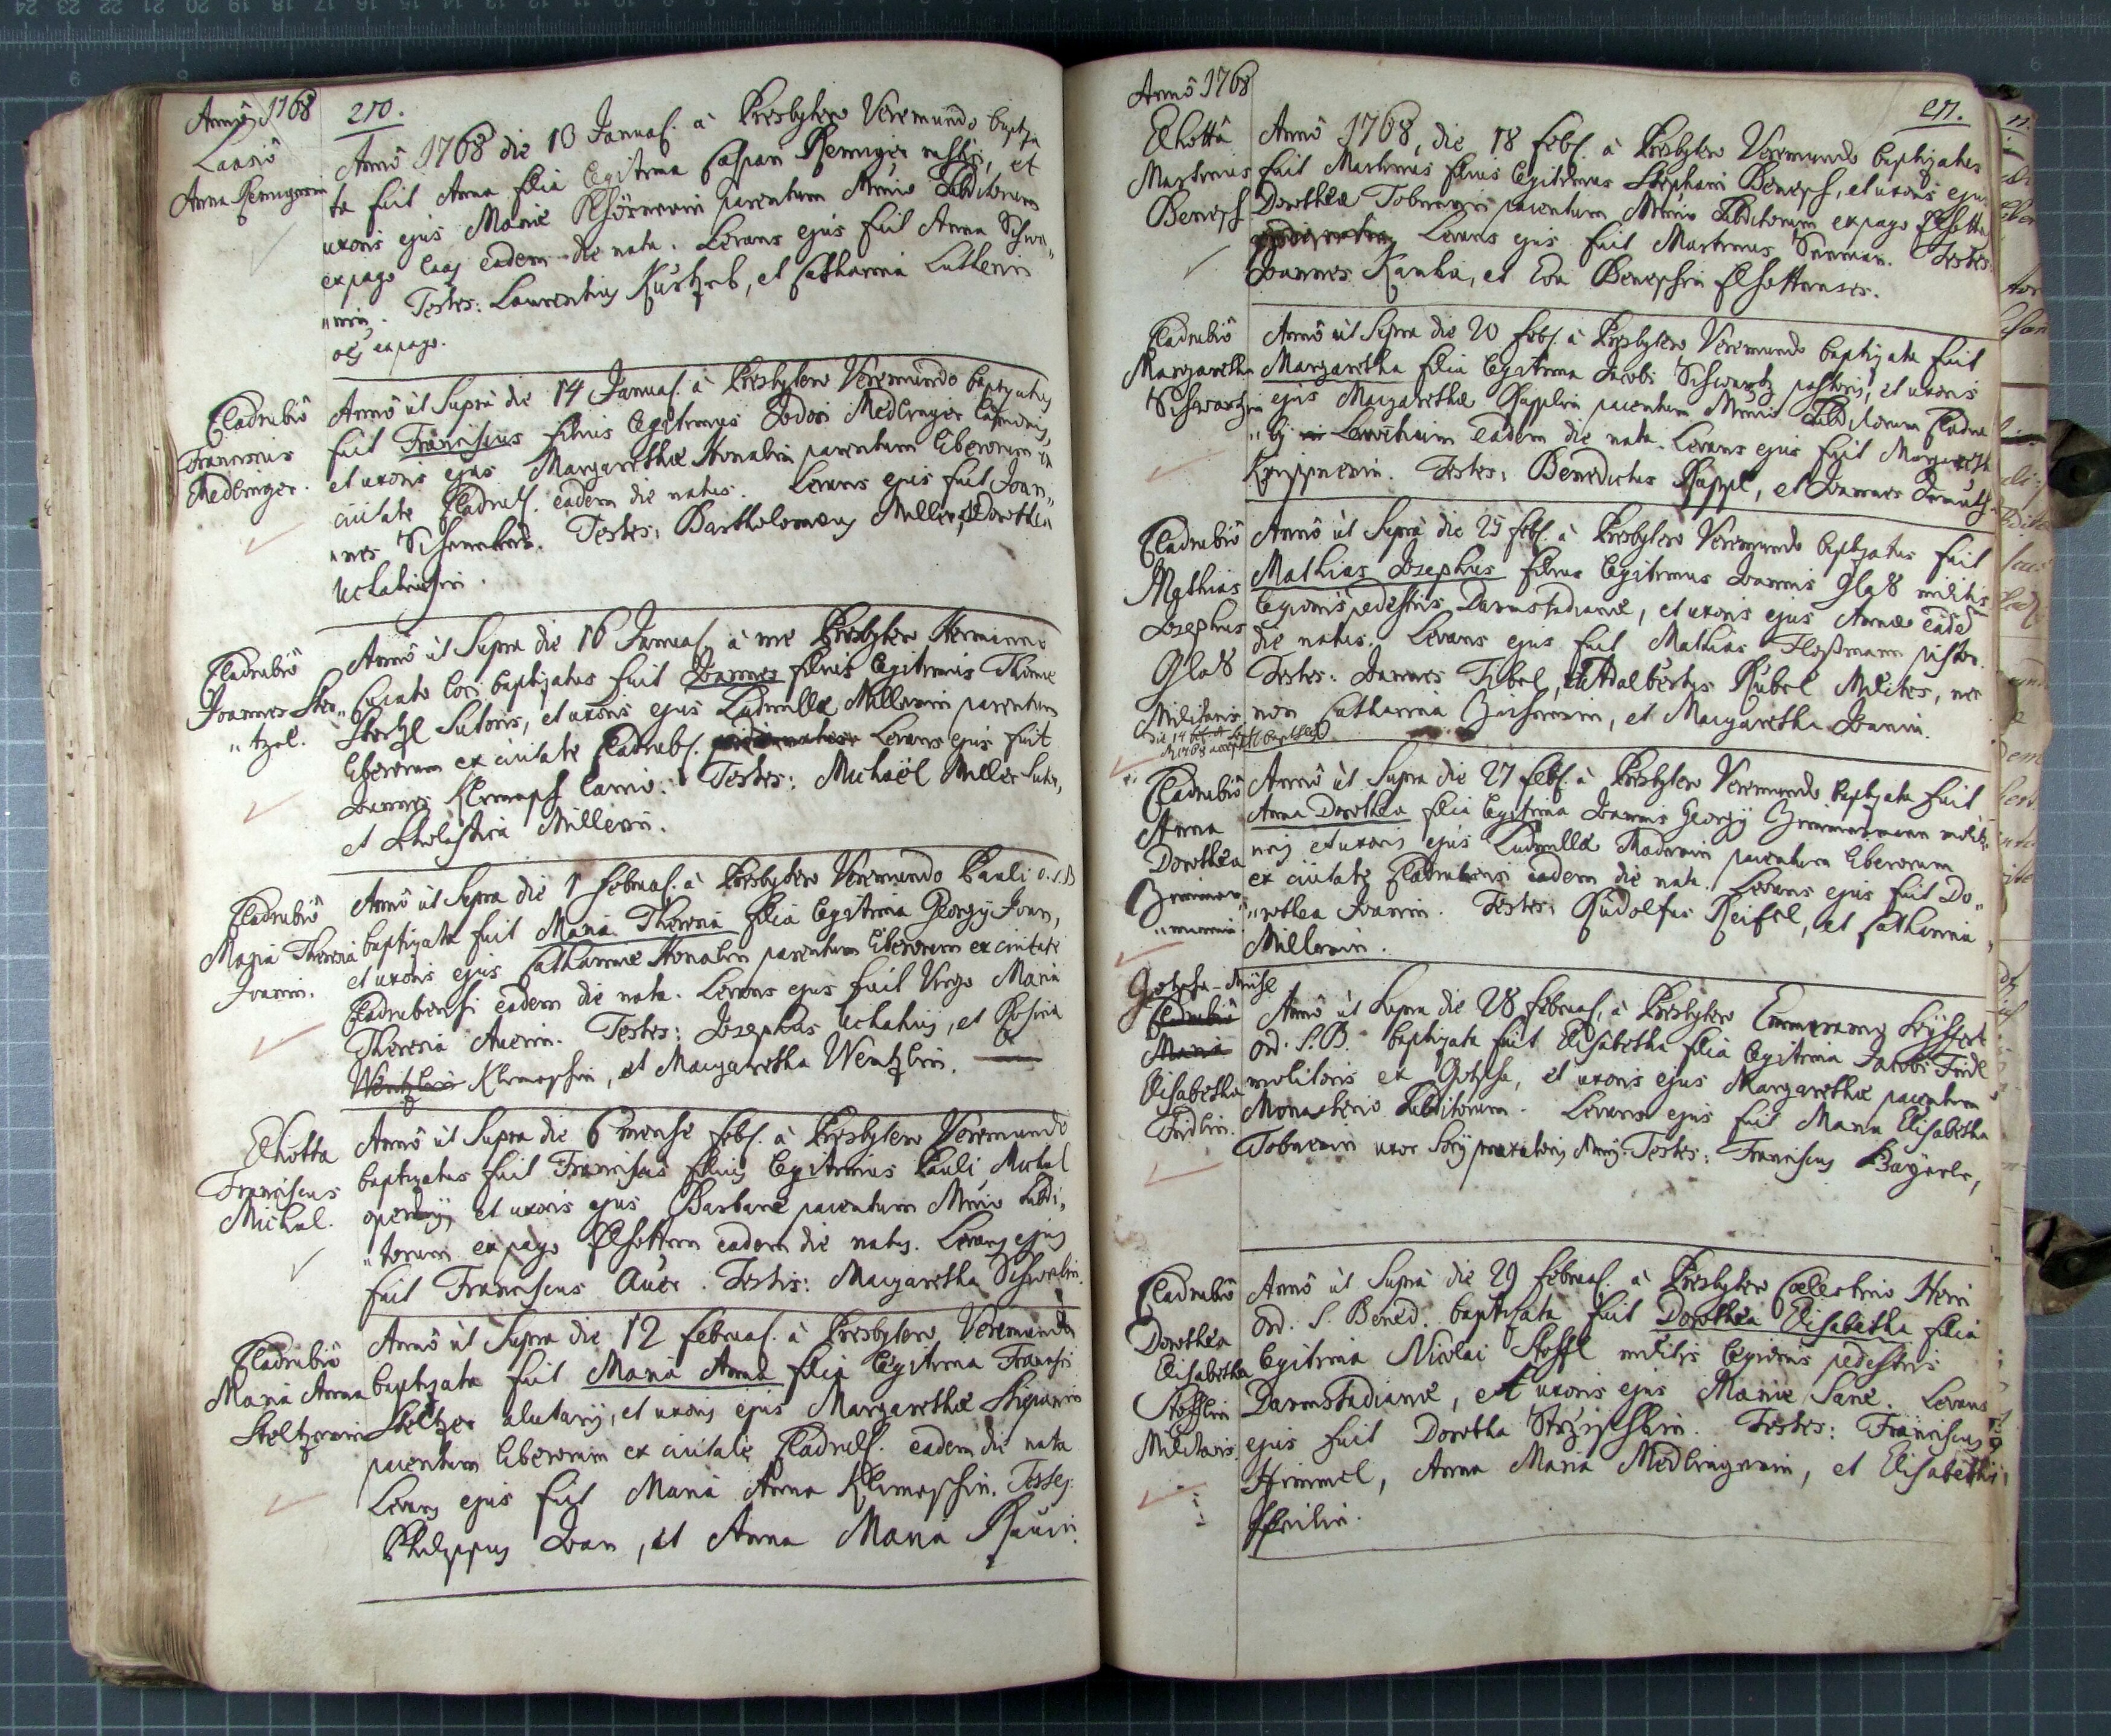 Anno 1768
210.
Laasiô
Anna Remigerin
Anno 1768 die 10 Januar. à Presbytero Veremundo baptiza
ta fuit Anna filia legitima Caspari Remiger rustici, et
uxoris ejus Mariæ parentum Mrio Subditorum
ex pago Laas eadem die nata. Levans ejus fuit Anna
Testes: Laurentius et Catharina Lutherin
ex pago.
Cladrubiô
Franciscus
Medlinger.
Annô ùt Suprà die 14 Januar. à Presbytero Veremundo baptizatus
fuit Franciscus filius legitimus Medlinger
et uxoris ejus Margarethæ Honalin parentum liberorum ex
civitate Cladrub. eadem die natus. Levans ejus fuit Joan„
„nes Testes: Bartholomæus Miller, et Dorothea
Cladrubiô
Joannes Ster„
„tzel.
Annô ùt Supra die 16 Januar. à me Presbytero Hermanno
Curato loci baptizatus fuit Joannes filius legitimus Thomæ
Stertzl Sutoris, et uxoris ejus Ludmillæ Millerin parentum
liberorum ex civitate Cladrub. Levans ejus fuit
Joannes Klimesch lanio. Testes: Michaël Miller Sutor,
et Scholastica Millerin.
Cladrubiô
Maria Theresia
Joanin.
Annô ùt Supra die 1 Februar. à Presbytero Veremundo Pauli O.S.B
baptizata fuit Maria Theresia filia legitima Georgij Joan,
et uxoris ejus Catharinæ Honalin parentum liberorum ex civitate
Cladrubensi eadem die nata. Levans ejus fuit Virgo Maria
Theresia Auerin. Testes: Josephus et Rosina
Wentzlin Klimeschin, et Margaretha Wentzlin.
Elhotta
Franciscus
Michal.
Annô ùt Supra die 6 mense Feb. à Presbytero Veremundo
baptizatus fuit Franciscus filius legitimus Pauli Michal
et uxoris ejus Barbaræ parentum Mrio Subdi„
„torum ex pago Elhotten eadem die natus. Levans ejus
fuit Franciscus Auer. Testis: Margaretha
Cladrubiô
Maria Anna
Steltzerin
Annô ùt Supra die 12 Februar. à Presbytero Veremundo
baptizata fuit Maria Anna filia legitima Francisci
Steltzer alutarij, et uxoris ejus Margarethæ
parentum liberorum ex civitate Cladrub. eadem die nata
Levans ejus fuit Maria Anna Klimeschin. Testes:
Philippus Joan, et Anna Maria
Annô 1768
211.
Elhotta
Martinus
Benesch
Annô 1768, die 18 Feb. à Presbytero Veremundo baptizatus
fuit Martinus filius legitimus Stephani Benesch, et uxoris ejus
Dorotheæ Tobnerin parentum Mrio Subditorum ex pago Elhotta
Levans ejus fuit Martinus Testes:
Joannes Kanka, et Eva Beneschin Elhottenses.
Cladrubiô
Margaretha
Schwartzin
Annô ùt Supra die 20 Feb. à Presbytero Veremundo baptizata fuit
Margaretha filia legitima Jacobi Schwartz pastoris, et uxoris
ejus Margarethæ Rupplin parentum Mrio Subditorum Cladru
eadem die nata. Levans ejus fuit Margareth
Testes: Benedictus Ruppl, et Joannes
Cladrubiô
Mathias
Josephus
Glaß
Militaris
Annô ùt Suprà die 25 Feb. à Presbytero Veremundo baptizatus fuit
Mathias Josephus filius legitimus Joannis Glaß militis
legionis pedestris Darmstadianæ, et uxoris ejus Annæ eadem
die natus. Levans ejus fuit Mathias Floßmann pistor.
Testes: Joannes Tibel, et Adalbertus Rubel Milites, nec
non Catharina et Margaretha Joanin.
Cladrubiô
Anna
Dorothea
Zimmer„
„manin
Annô ùt Supra die 27 Feb. à Presbytero Veremundo baptizata fuit
Anna Dorothea filia legitima Joannis Georgij Zimmermann
et uxoris ejus Ludmillæ parentum liberorum
ex civitate Cladrubensi eadem die nata. Levans ejus fuit Do„
„rothea Joanin. Testes: Rudolfus Reifel, et Catharina
Millerin.
Gotscha-Mühl
Cladrubiô
Maria
Elisabetha
Fridlin.
Annô ùt Supra die 28 Februar. à Presbytero Emmeramo
Ord. S.B. baptizata fuit Elisabetha filia legitima Jacobi Fridl
molitoris ex Gotscha, et uxoris ejus Margarethæ parentum
Monasterio Subditorum. Levans ejus fuit Maria Elisabetha
Tobnerin uxor Testes: Franciscus
Cladrubiô
Dorothea
Elisabetha
Stofflin
Militaris.
Annô ùt Suprà die 29 Februar. à Presbytero Cœlestino
Ord. S. Bened. baptizata fuit Dorothea Elisabetha filia
legitima Nicolai Stoffl militis legionis pedestris
Darmstadianæ, et uxoris ejus Mariæ Levans
ejus fuit Dorothea Testes: Franciscus
Himmel, Anna Maria Medlingerin, et Elisabetha